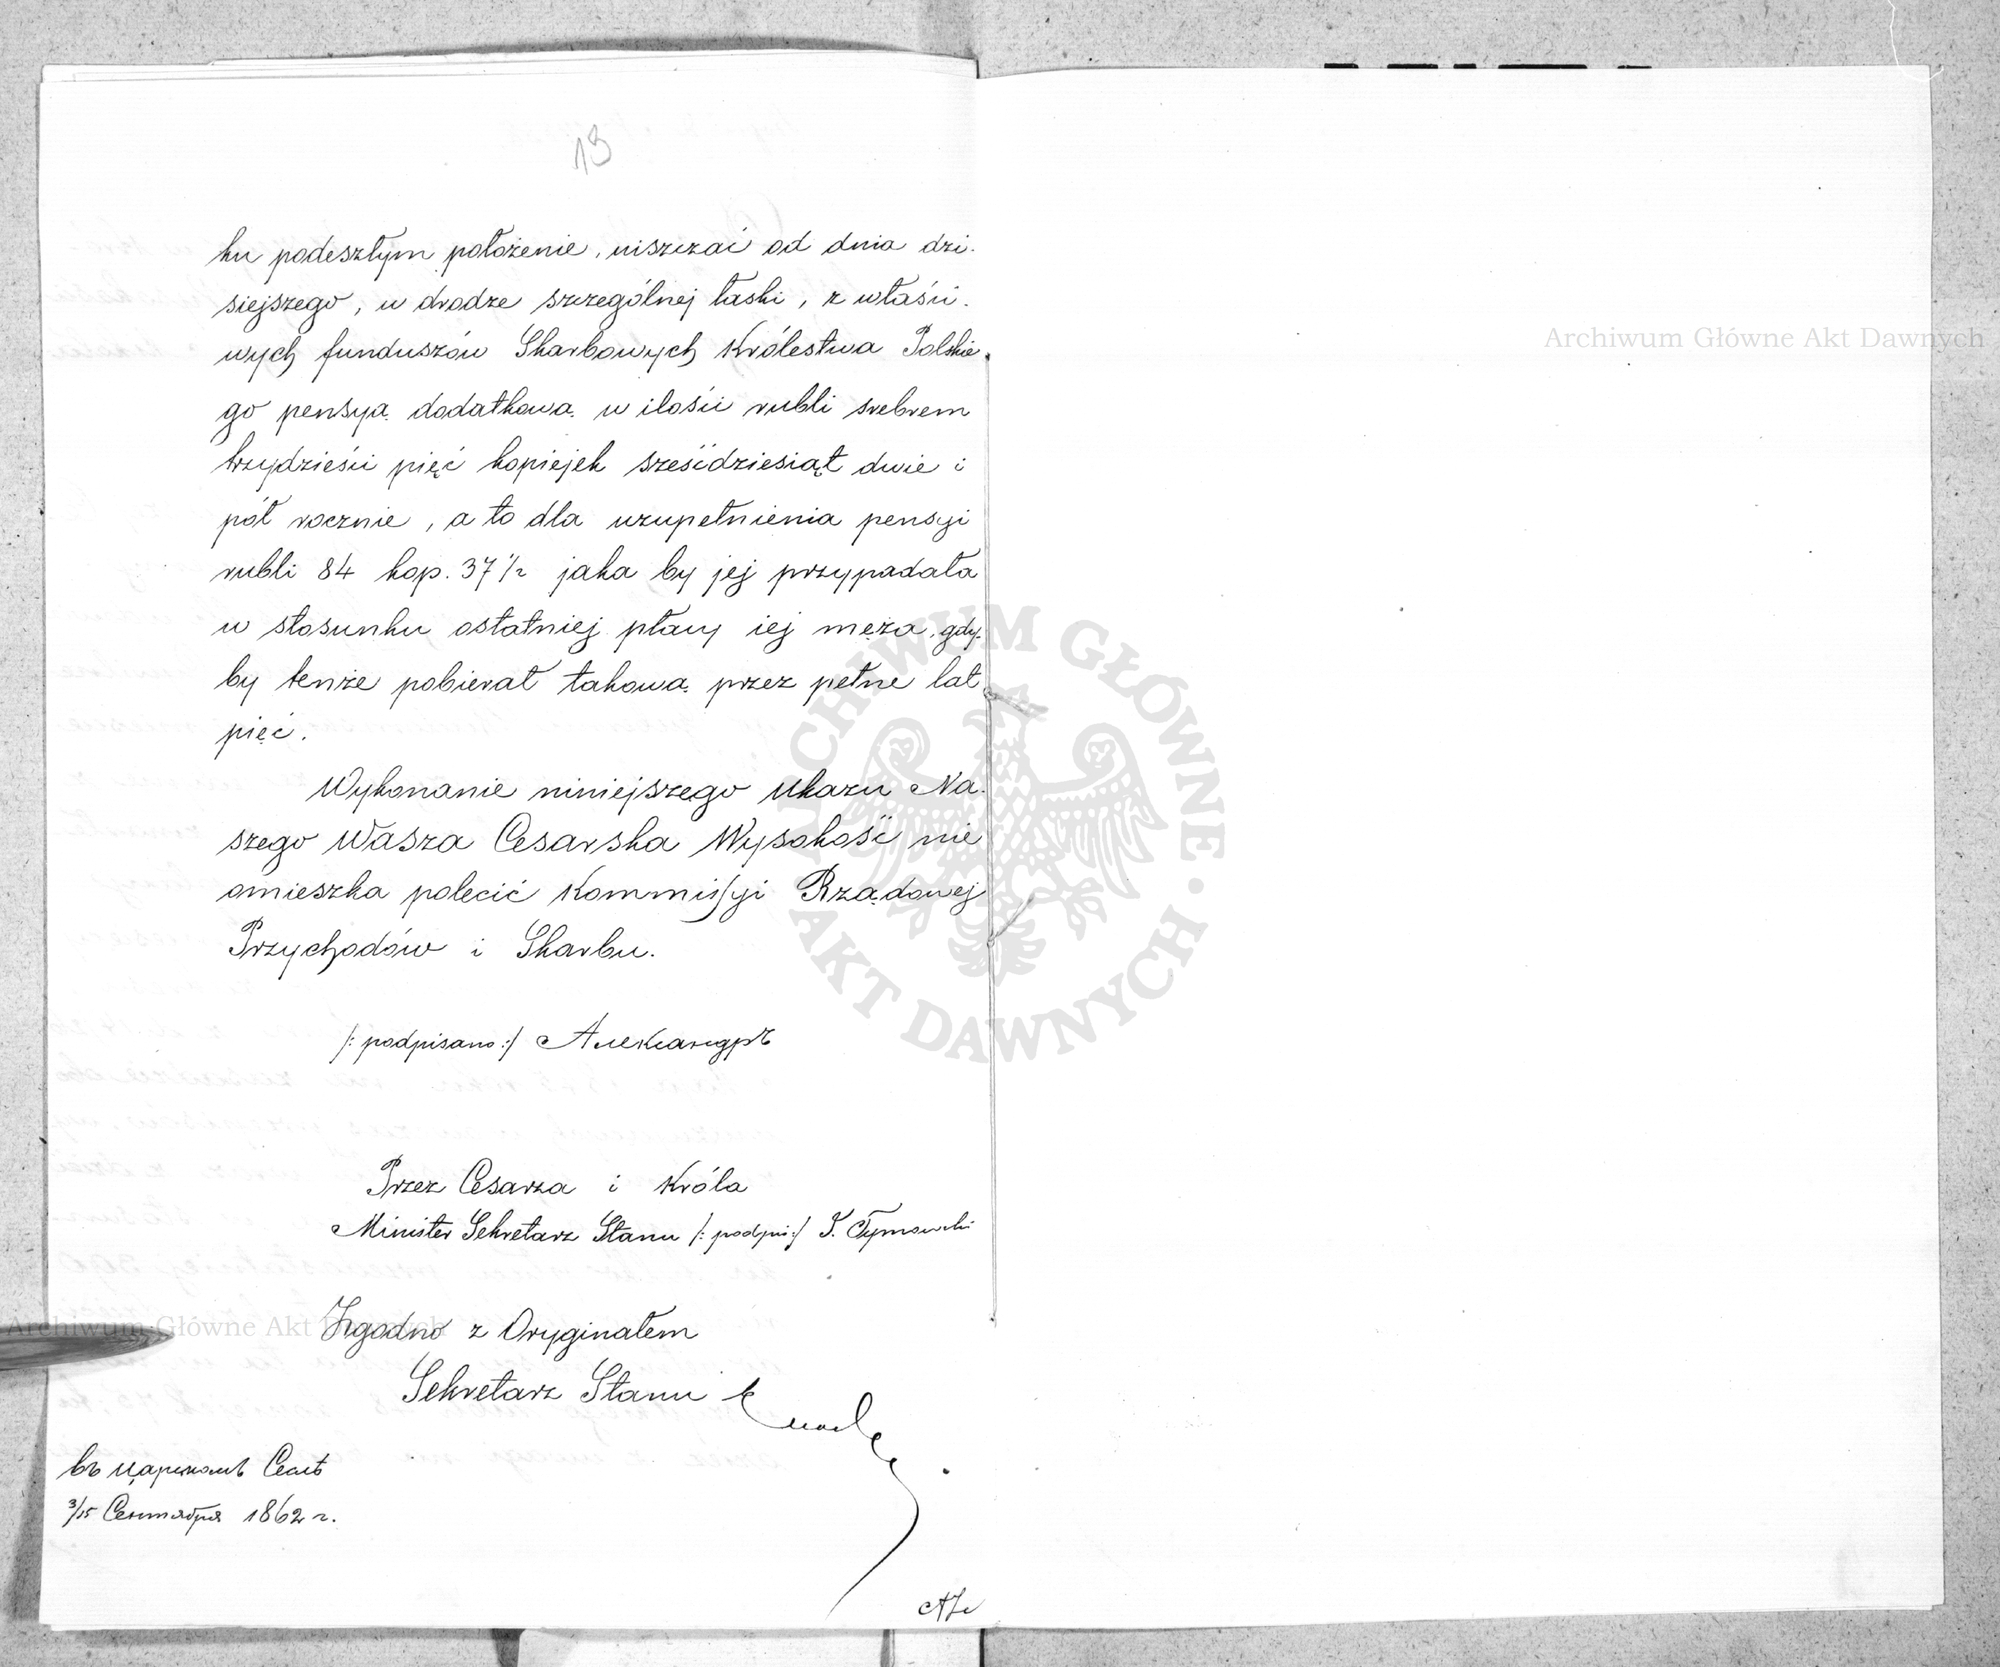 13
ku podeszłym położenie, uiszczać od dnia dzi-
siejszego, w drodze szczególnej łaski, z właści-
wych funduszów Skarbowych Królestwa Polskie-
go pensyą dodatkową w ilości rubli srebrem
trzydzieści pięć kopiejek sześćdziesiąt dwie i
pół rocznie, a to dla uzupełnienia pensyi
rubli 84 kop. 37 1/2 jaka by jej przypadała
w stosunku ostatniej płacy iej męża, gdy-
by tenże pobierał takową przez pełne lat
pięć.
Wykonanie niniejszego Ukazu Na-
szego Wasza Cesarska Wysokość nie
omieszka polecić Kommissyi Rządowej
Przychodów i Skarbu.
/: podpisano :/ Александръ
Przez Cesarza i Króla
Minister Sekretarz Stanu /: podpis :/ J. Tymowski
Zgodno z Oryginałem
Sekretarz Stanu
въ Царскомъ Селѣ
3/15 Сентября 1862 г.
Archiwum Główne Akt Dawnych
Archiwum Główne Akt Dawnych
ARCHIWUM GŁÓWNE
AKT DAWNYCH